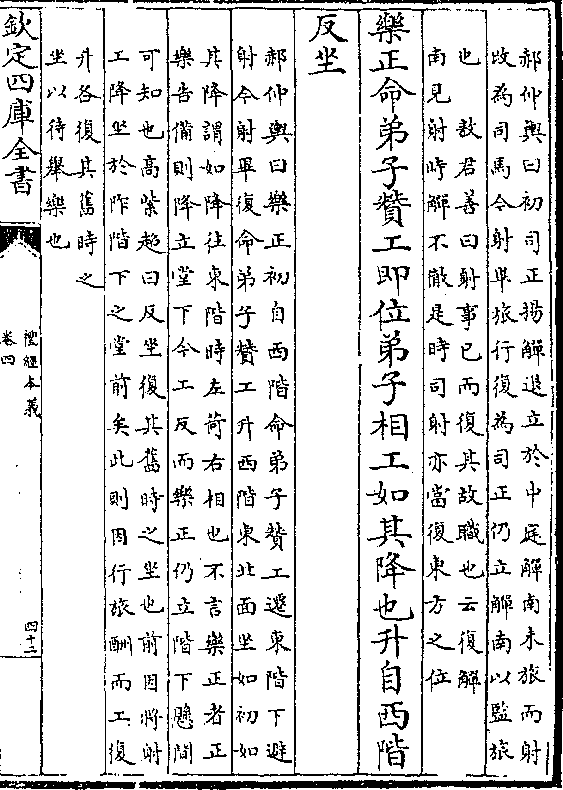 郝仲輿曰初司正揚觶退立於中庭觶南未旅而射
故為司馬今射畢旅行復為司正仍立觶南以監旅
也　敖君善曰射事已而復其故職也云復觶
南見射時觶不徹是時司射亦當復東方之位
樂正命弟子贊工即位弟子相工如其降也升自西階
反坐
郝仲輿曰樂正初自西階命弟子贊工遷東階下避
射今射畢復命弟子贊工升西階東北面坐如初如
其降謂如降往東階時左荷右相也不言樂正者正
樂告備則降立堂下今工反而樂正仍立階下懸間
可知也高紫超曰反坐復其舊時之坐也前因將射
工降坐於阼階下之堂前矣此則因行旅酬而工復
升各復其舊時之
坐以待舉樂也
欽定四庫全書
禮經本義
卷四
四十二